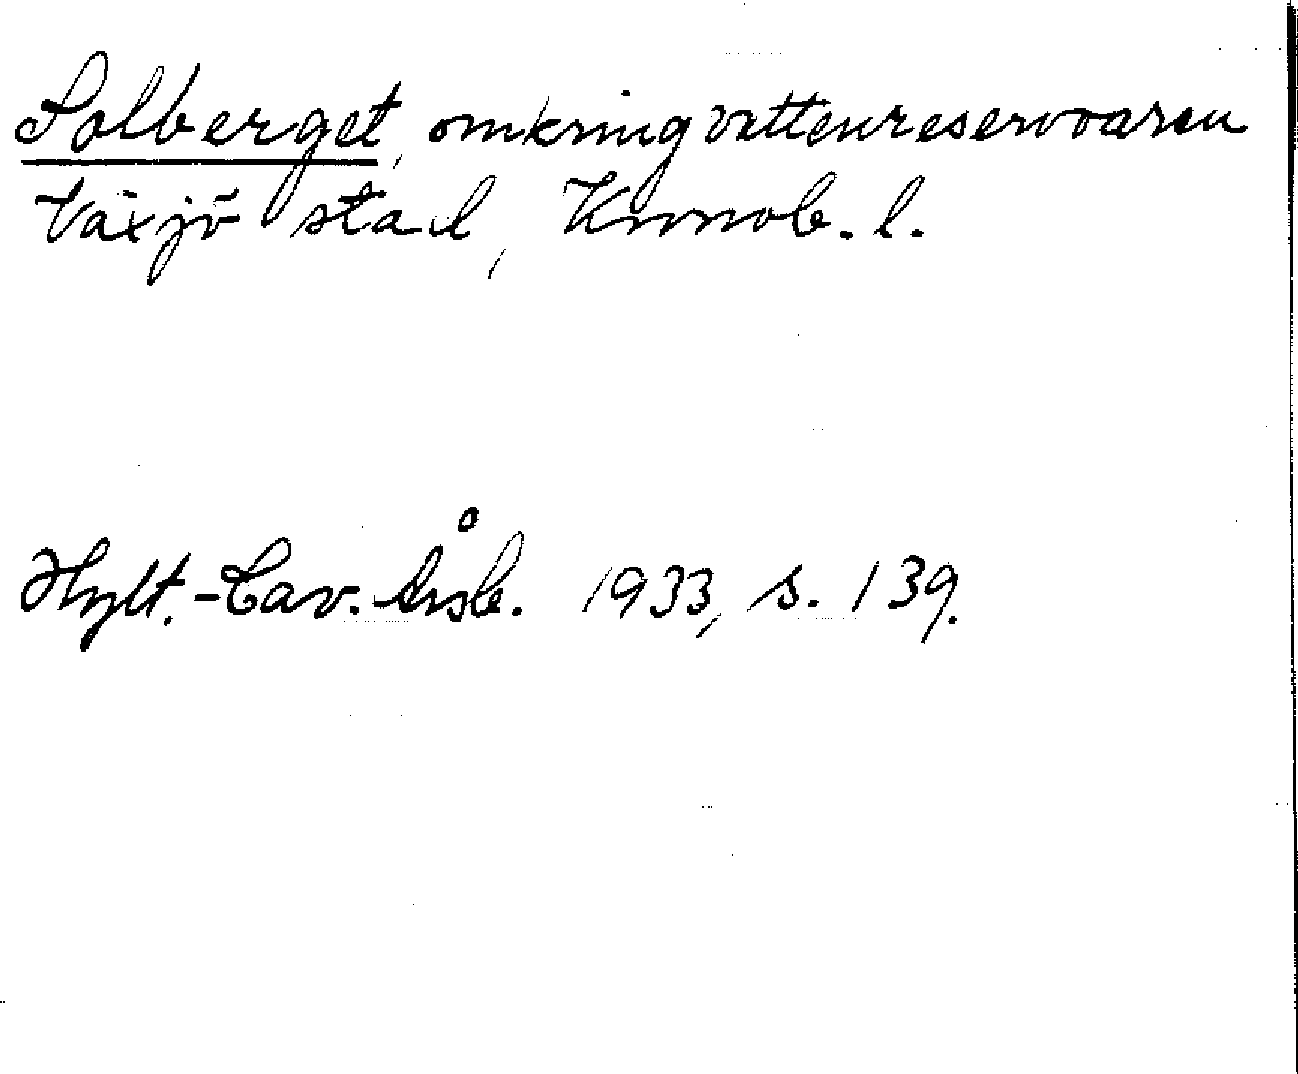 Solberget, omkring vattenreservoaren
Växjö stad, Kronob. l.
Hylt.-Cav. Årsb. 1933, s. 139.